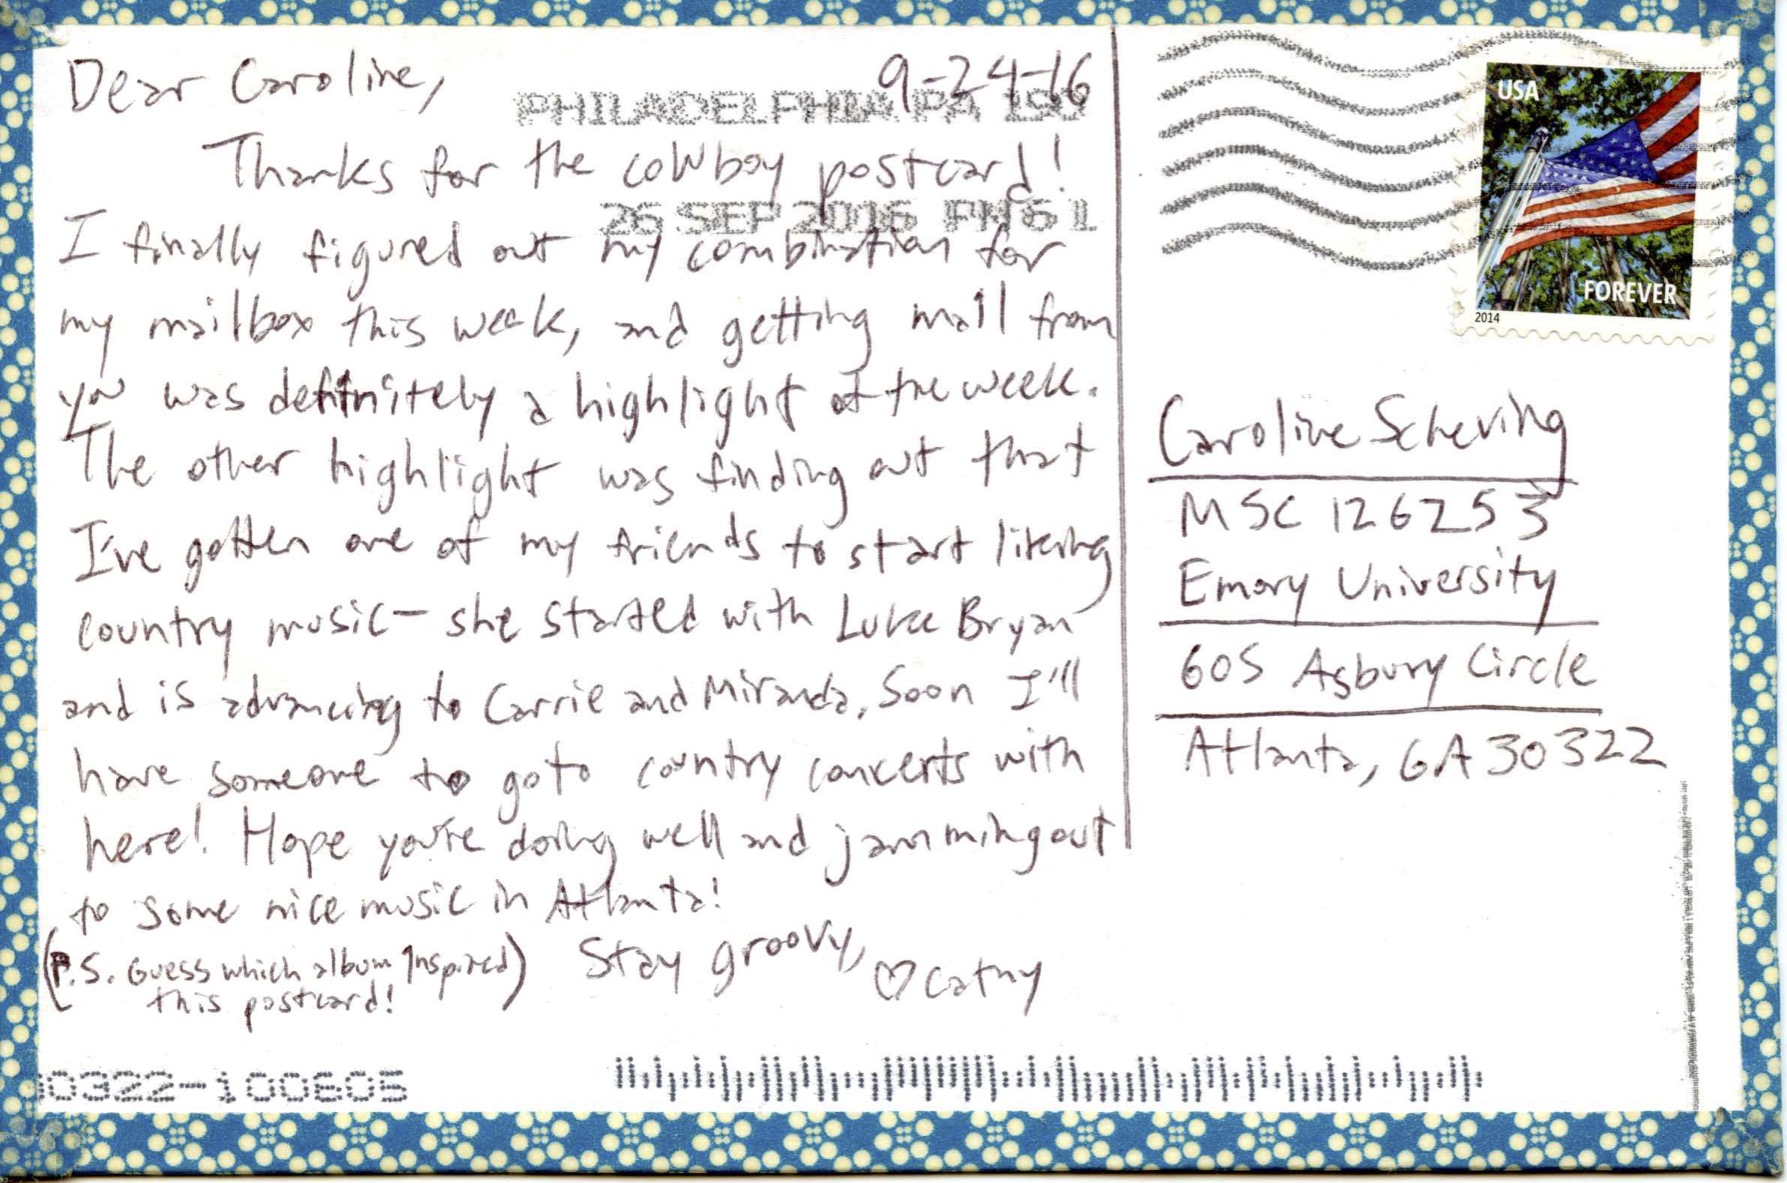 Dear Caroline,
9-24-16
PHILADELPHIA PA 190
Thanks for the cowboy postcard!
26 SEP 2016 PM 6 L
I finally figured out my combination for
my mailbox this week, and getting mail from
you was definitely a highlight of the week.
The other highlight was finding out that
I've gotten one of my friends to start liking
country music— she started with Luke Bryan
and is advancing to Carrie and Miranda. Soon I'll
have someone to go to country concerts with
here! Hope you're doing well and jamming out
to some nice music in Atlanta!
(P.S. Guess which album inspired
this postcard!)
Stay groovy,
♡ Cathy
USA
FOREVER
2014
Caroline Schering
MSC 126253
Emory University
605 Asbury Circle
Atlanta, GA 30322
30322-100605